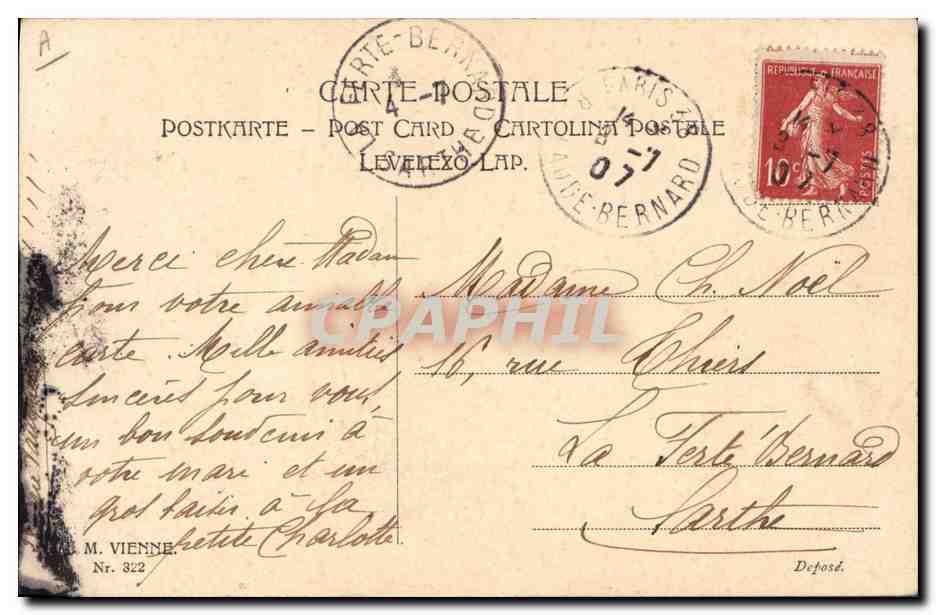 A
CARTE POSTALE
POSTKARTE – POST CARD – CARTOLINA POSTALE
LEVELEZÖ LAP.
LA FERTE-BERNARD
SARTHE
4 -7
PARIS
5 -7
07
VAUGE-BERNARD
REPUBLIQUE FRANÇAISE
10 c
POSTES
Merci chère Madame
pour votre aimable
carte. Mille amitiés
sincères pour vous,
un bon souvenir à
votre mari et un
gros baiser à la
petite Charlotte
Madame Ch. Noël
16, rue Thiers
La Ferté Bernard
Sarthe
CPAPHIL
M. VIENNE.
Nr. 322
Deposé.